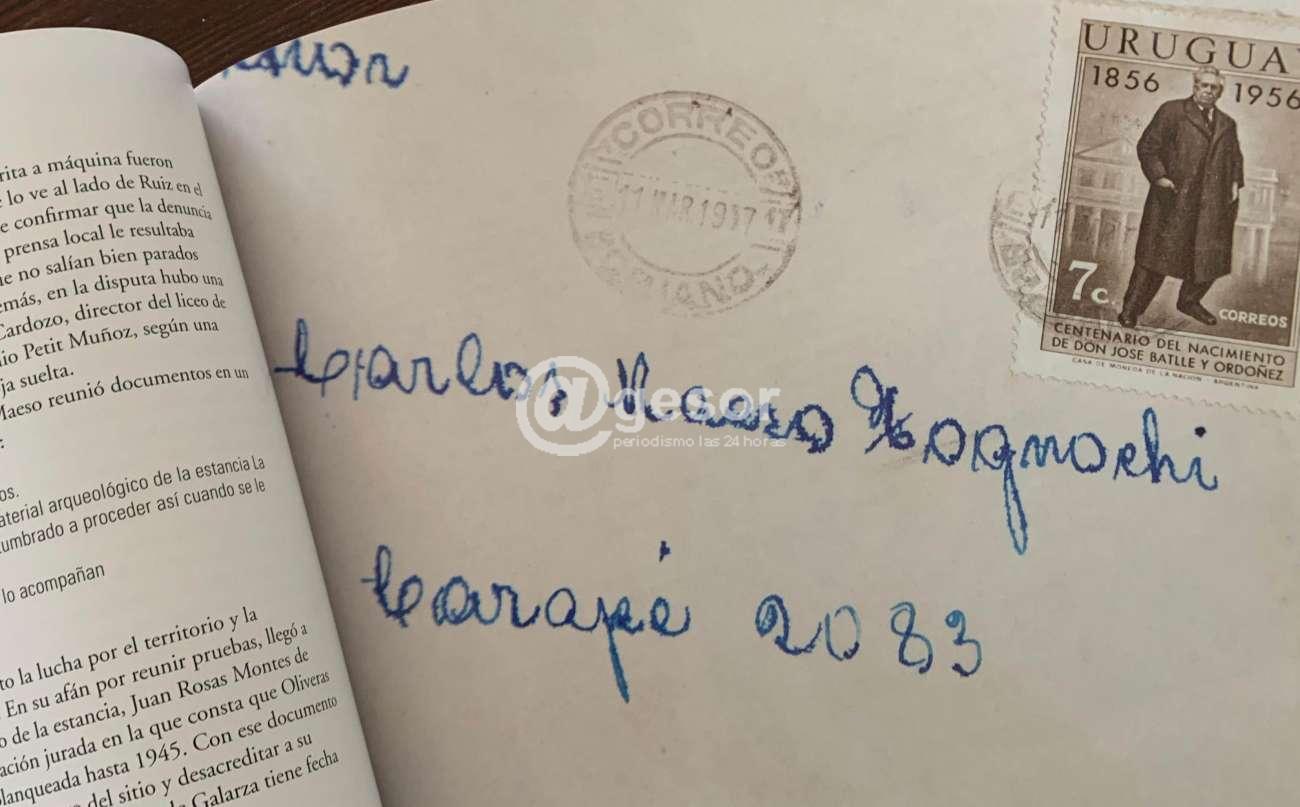 rita a máquina fueron
lo ve al lado de Ruiz en el
e confirmar que la denuncia
prensa local le resultaba
ue no salían bien parados
emás, en la disputa hubo una
Cardozo, director del liceo de
io Petit Muñoz, según una
ja suelta.
Maeso reunió documentos en un
:
os.
aterial arqueológico de la estancia La
umbrado a proceder así cuando se le
lo acompañan
to la lucha por el territorio y la
. En su afán por reunir pruebas, llegó a
o de la estancia, Juan Rosas Montes de
ación jurada en la que consta que Oliveras
lanqueada hasta 1945. Con ese documento
del sitio y desacreditar a su
Galarza tiene fecha
CORREO
11 MAR 1957
URUGUAY
1856 1956
7c.
CORREOS
CENTENARIO DEL NACIMIENTO
DE DON JOSE BATLLE Y ORDOÑEZ
CASA DE MONEDA DE LA NACION - ARGENTINA
Carlos Maeso Tognochi
Carapé 2083
@gesor
periodismo las 24 horas